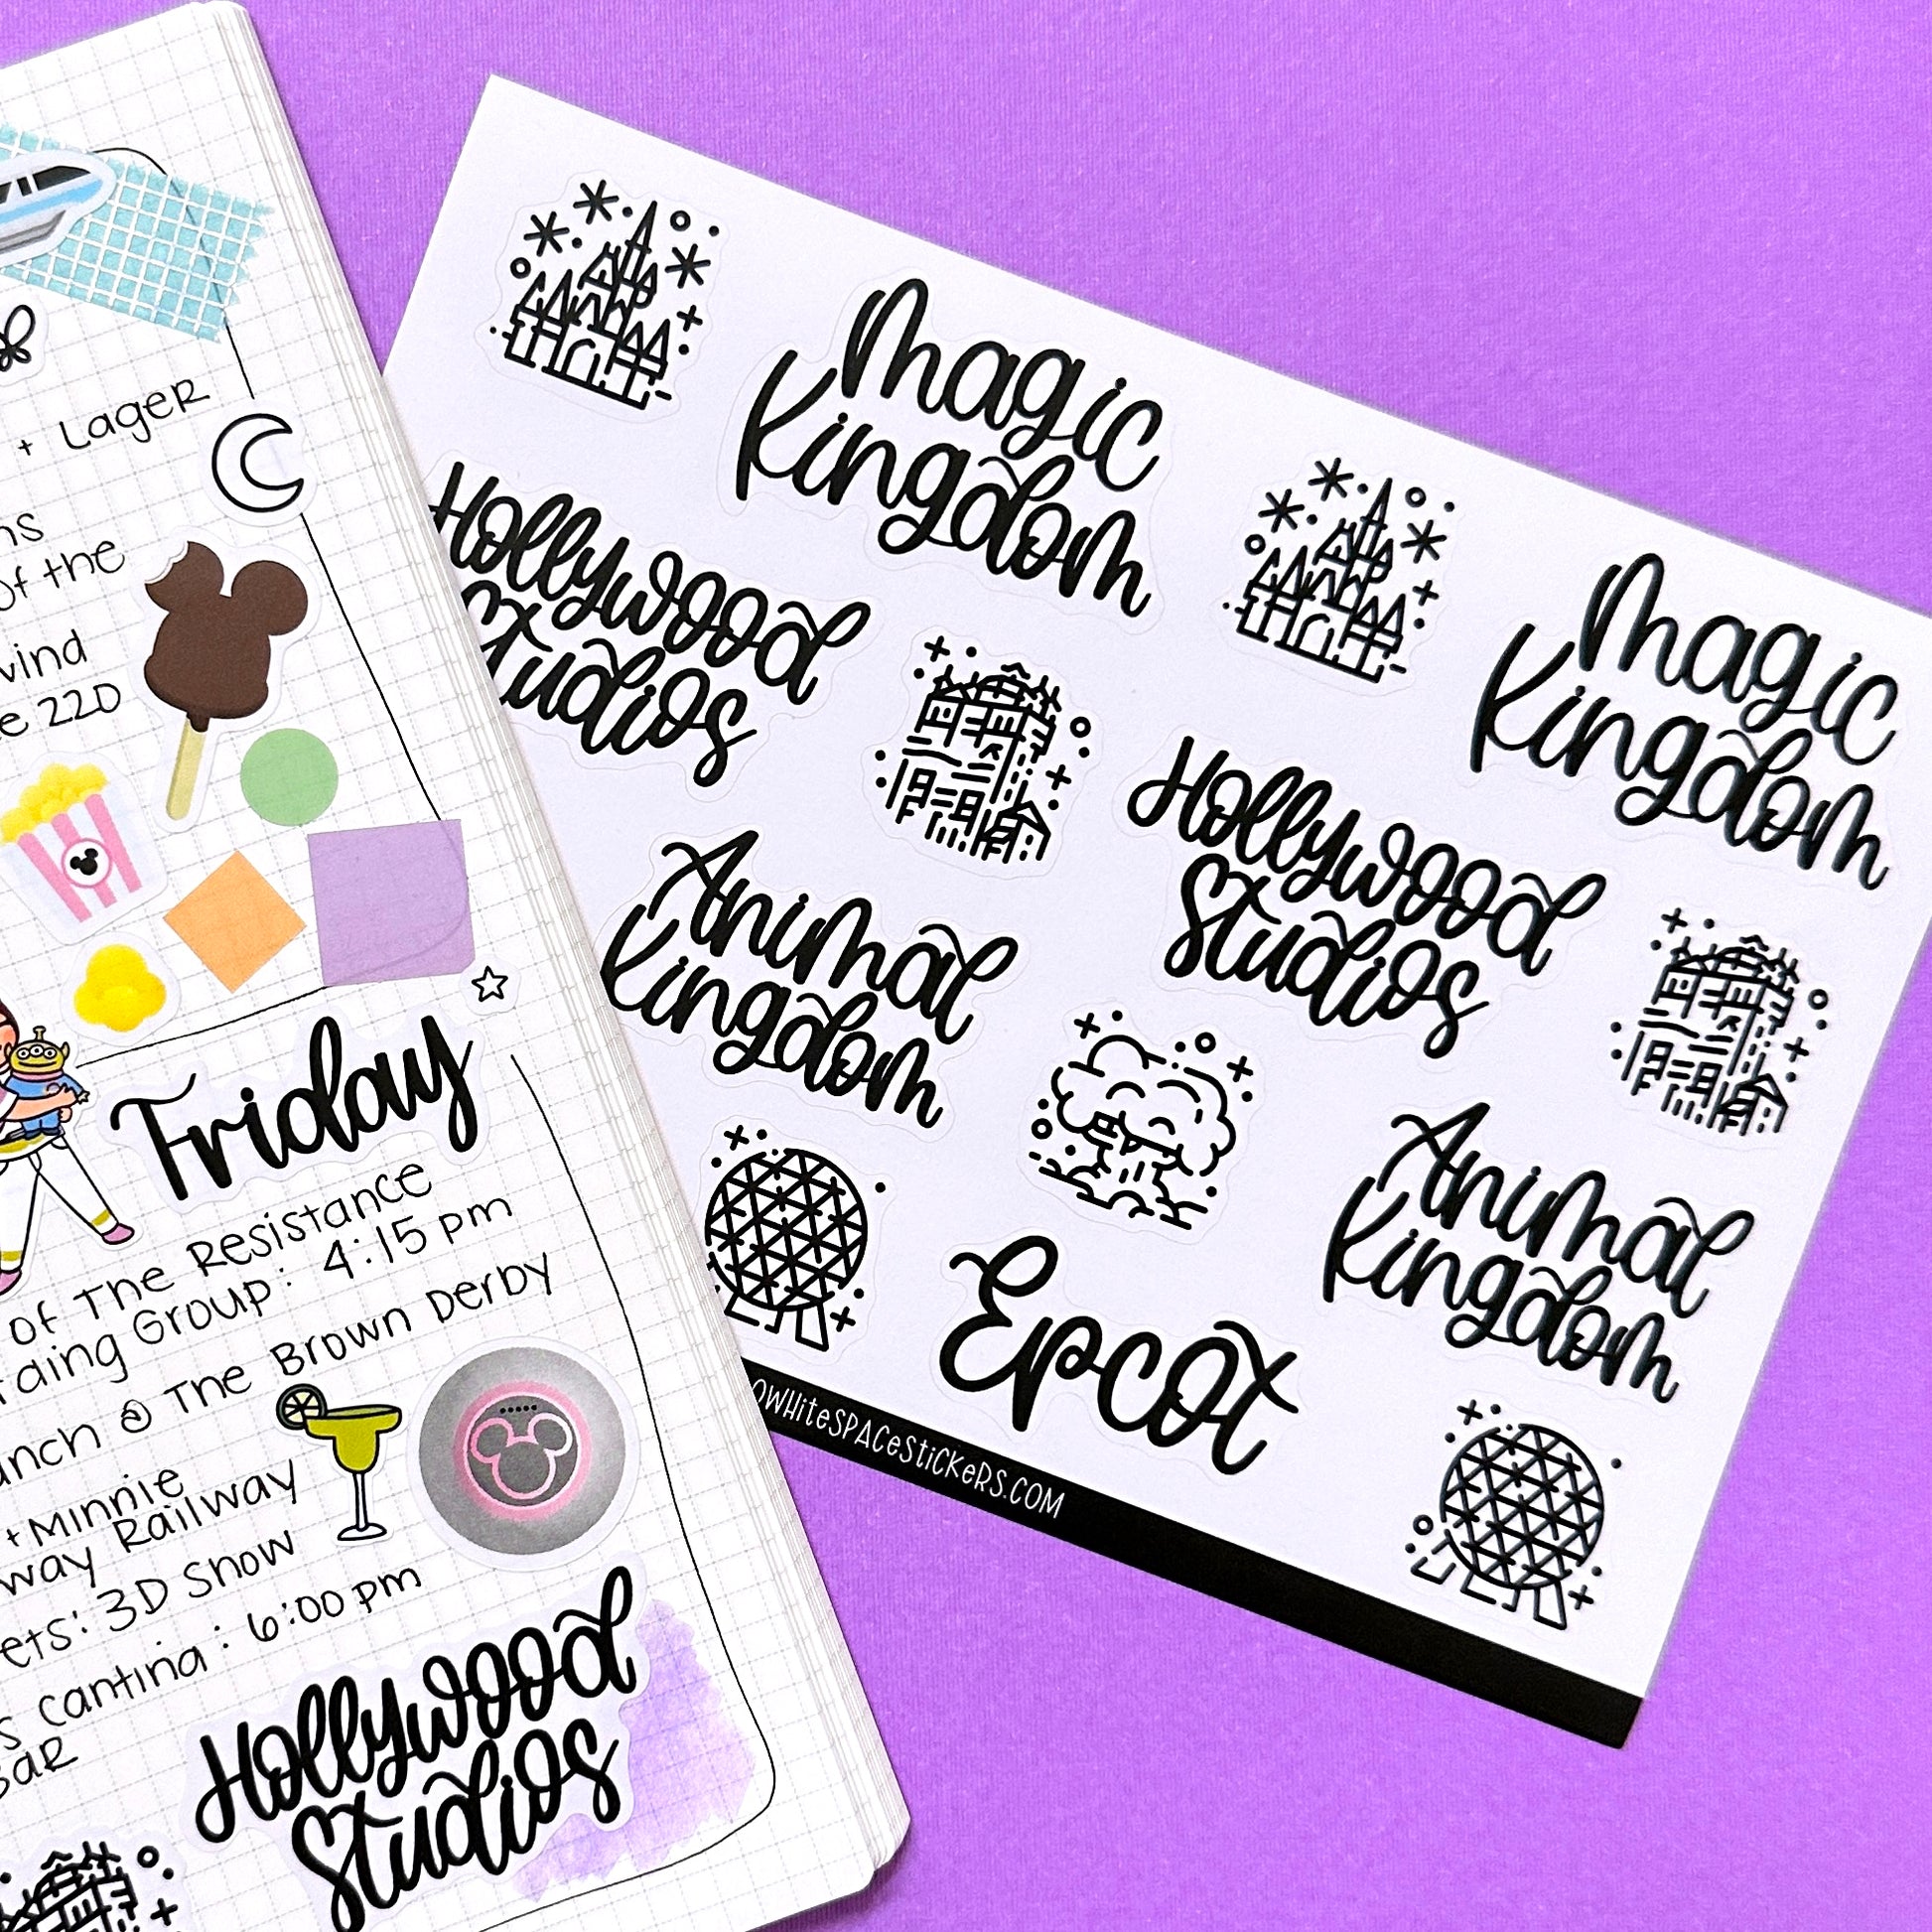 + Lager
of the
220
Friday
of The Resistance
Group: 4:15 pm
@ The Brown Derby
+ Minnie
Railway
3D Show
Cantina: 6:00 pm
Bar
Hollywood
Studios
Magic
Kingdom
Magic
Kingdom
Hollywood
Studios
Hollywood
Studios
Animal
Kingdom
Animal
Kingdom
Epcot
OWHITESPACESTICKERS.COM